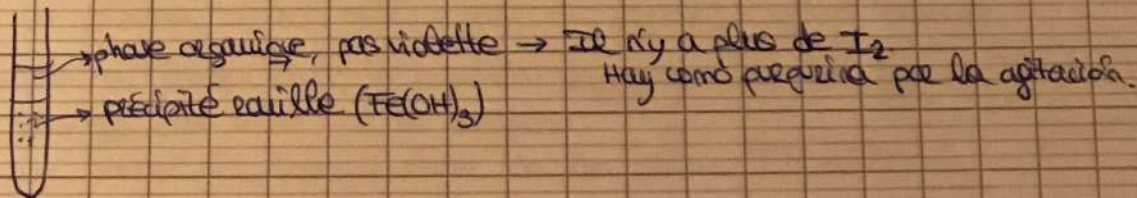 phase organique, pas violette → Il n'y a plus de I₂
Hay como por la agitación.
précipité rouille (Fe(OH)₃)